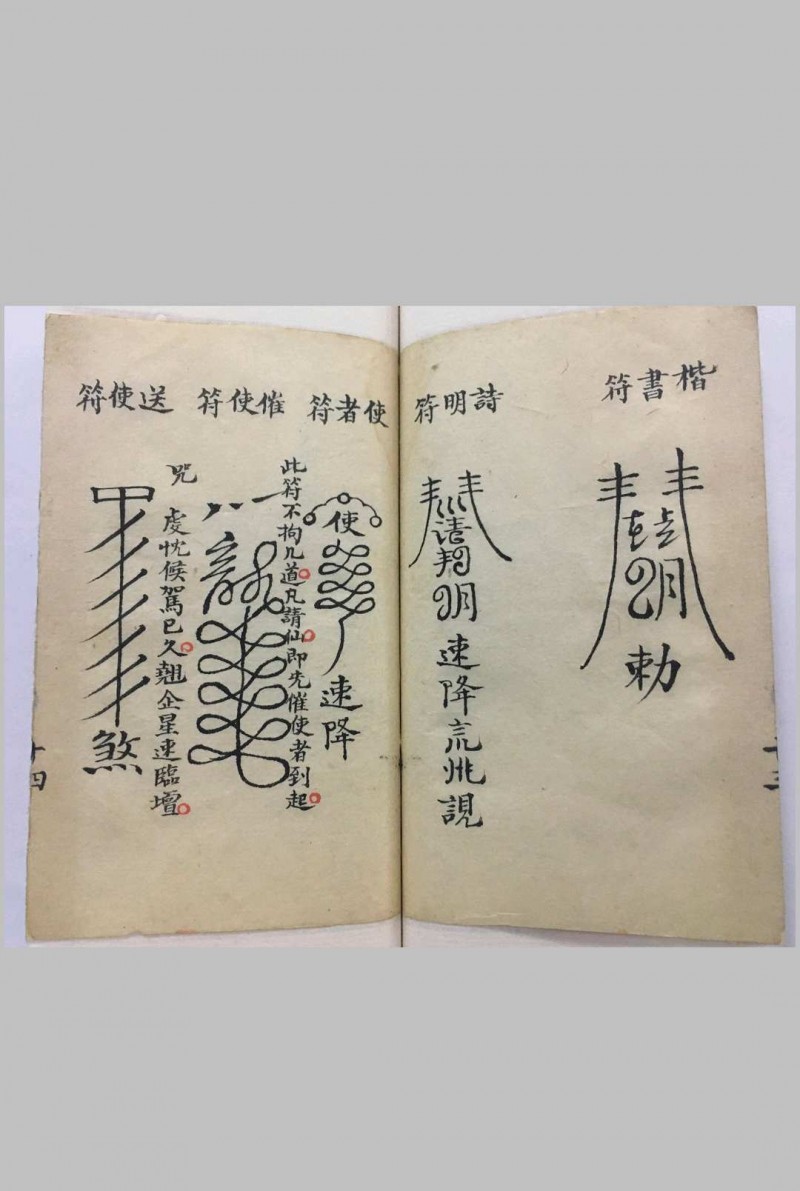 楷書符
明
勅
十三
詩明符
清
明
速降
使者符
使
速降
此符不拘几道凡請仙即先催使者到起
催使符
咒
虔忱候駕已久翹企星速臨壇
送使符
煞
十四